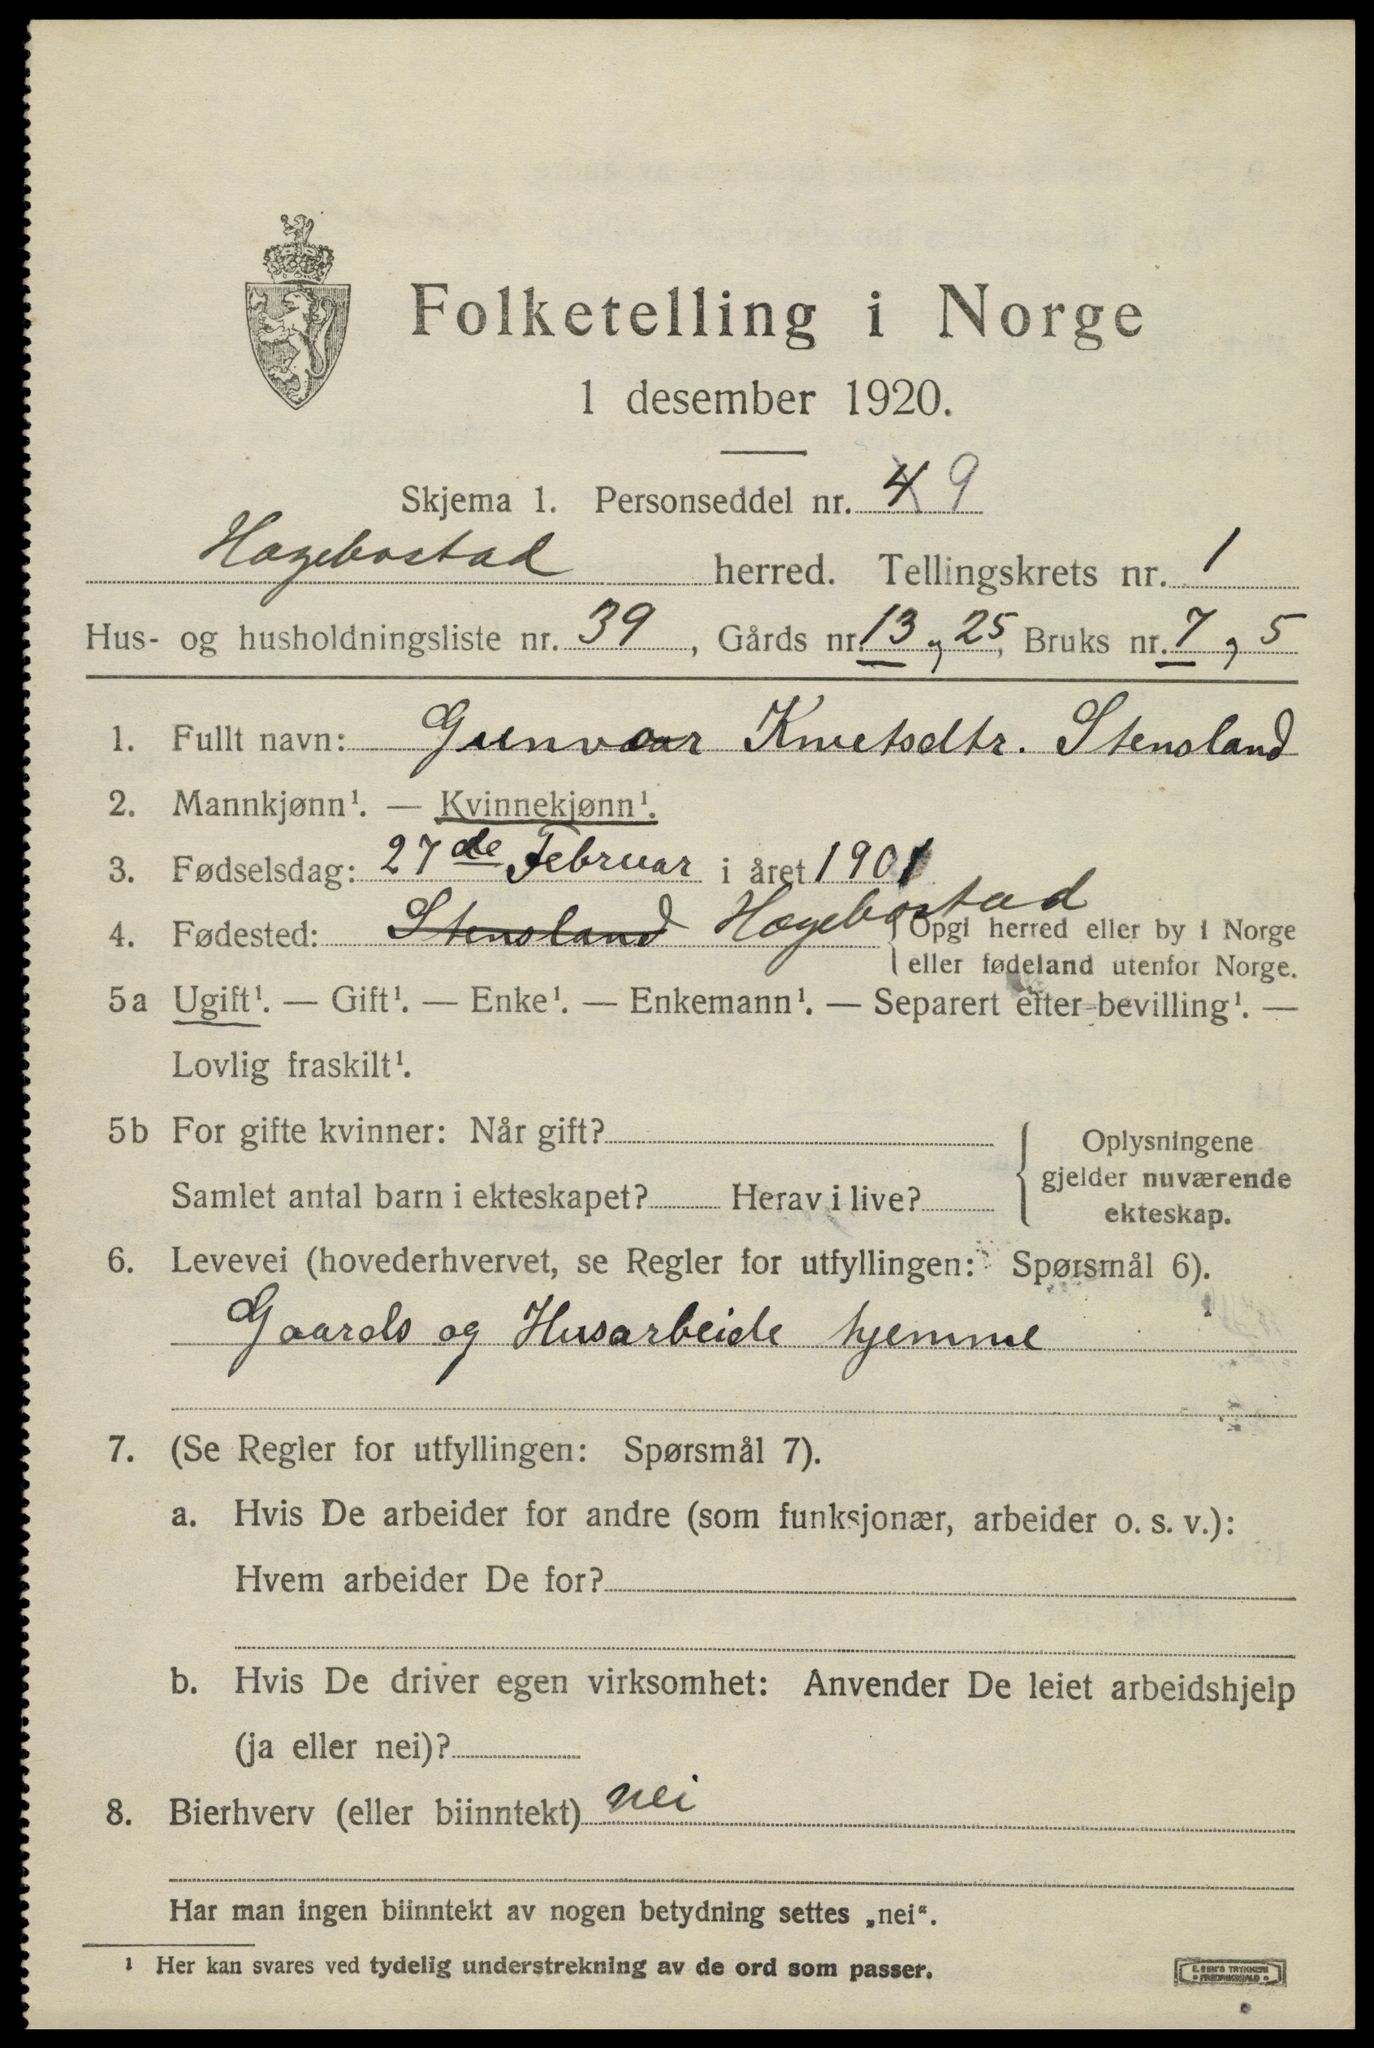 Folketelling i Norge
1 desember 1920.
Skjema 1. Personseddel nr. 4 9
Hægebostad herred. Tellingskrets nr. 1
Hus- og husholdningsliste nr. 39, Gårds nr. 13, 25, Bruks nr. 7, 5
1. Fullt navn: Gunvaar Knutsdtr. Stensland
2. Mannkjønn¹. — Kvinnekjønn¹.
3. Fødselsdag: 27de Februar i året 1901
4. Fødested: Stensland Hægebostad { Opgi herred eller by i Norge
eller fødeland utenfor Norge.
5a Ugift¹. — Gift¹. — Enke¹. — Enkemann¹. — Separert efter bevilling¹. —
Lovlig fraskilt¹.
5b For gifte kvinner: Når gift? { Oplysningene
gjelder nuværende
Samlet antal barn i ekteskapet? Herav i live? ekteskap.
6. Levevei (hovederhvervet, se Regler for utfyllingen: Spørsmål 6).
Gaards og Husarbeide hjemme
7. (Se Regler for utfyllingen: Spørsmål 7).
a. Hvis De arbeider for andre (som funksjonær, arbeider o. s. v.):
Hvem arbeider De for?
b. Hvis De driver egen virksomhet: Anvender De leiet arbeidshjelp
(ja eller nei)?
8. Bierhverv (eller biinntekt) nei
Har man ingen biinntekt av nogen betydning settes „nei“.
¹ Her kan svares ved tydelig understrekning av de ord som passer.